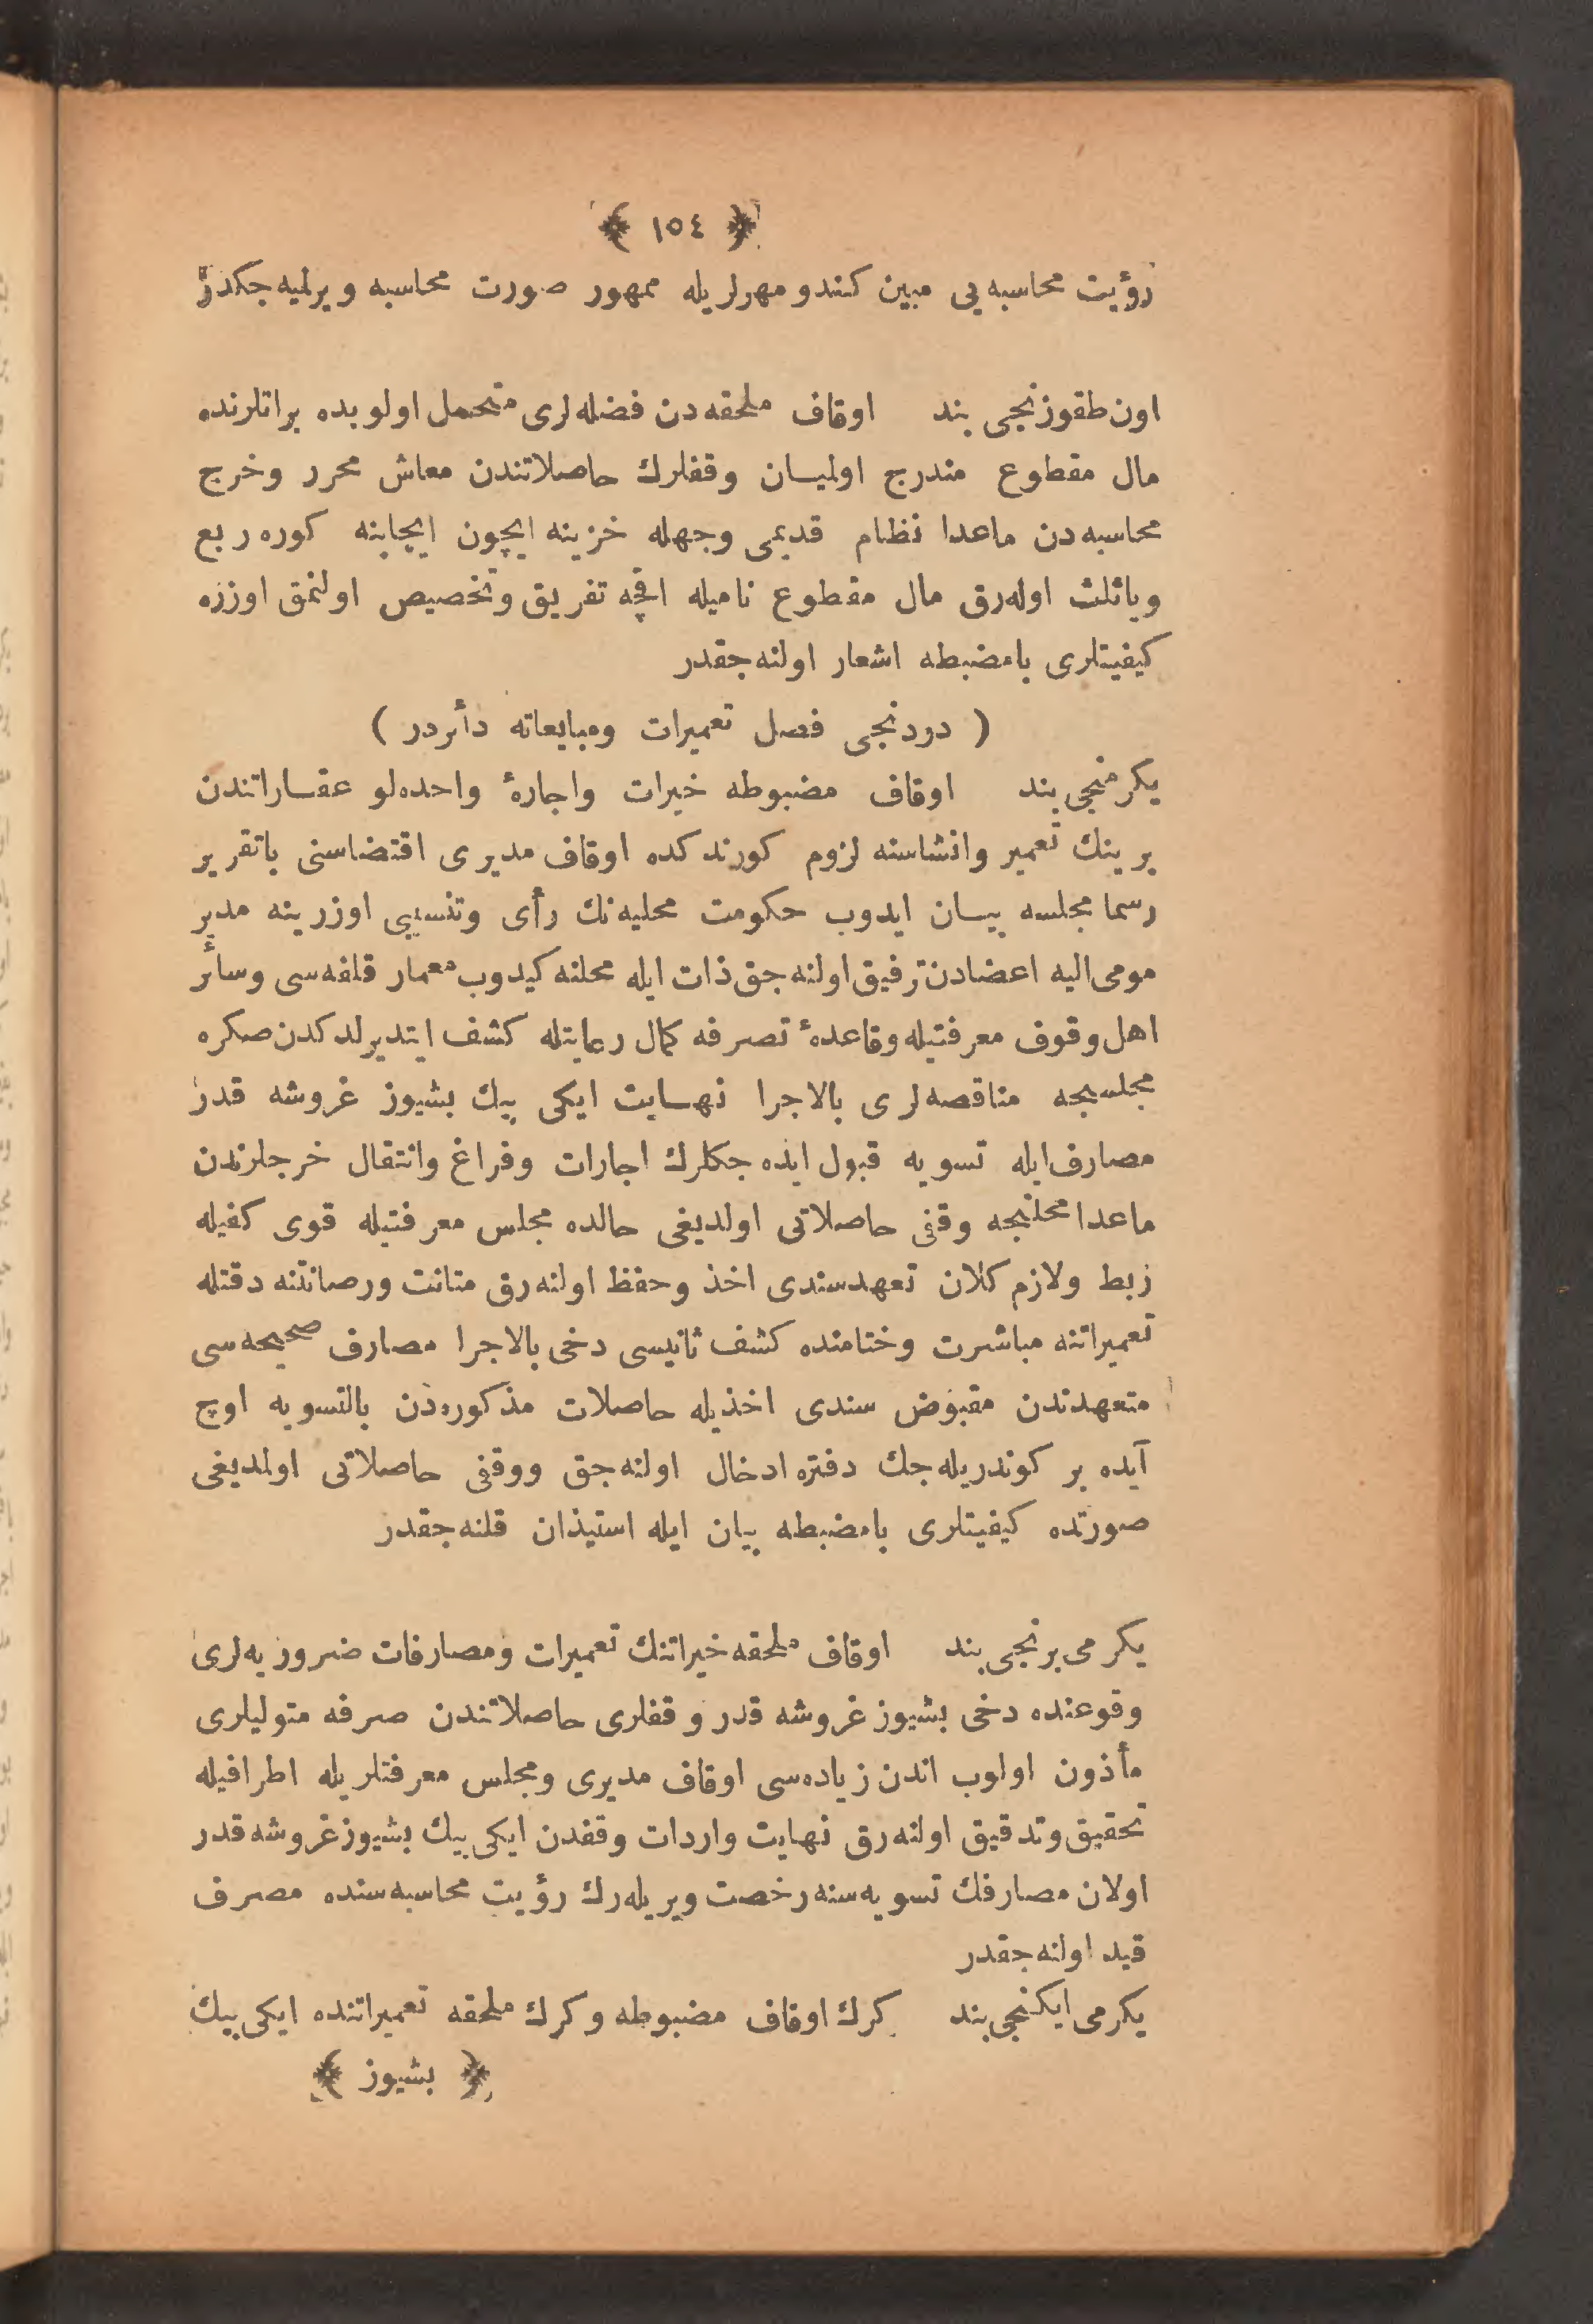 ﴿ ١٥٤ ﴾
رؤيت محاسبه يى مبين كندو مهرلريله ممهور صورت محاسبه ويرلميه جكدر
اون طقوزنجى بند اوقاف ملحقه دن فضله لرى متحمل اولوبده براتلرنده
مال مقطوع مندرج اولميان وقفلرك حاصلاتندن معاش محرر وخرج
محاسبه دن ماعدا نظام قديمى وجهله خزينه ايچون ايجابنه كوره ربع
وياثلث اوله رق مال مقطوع ناميله اقچه تفريق وتخصيص اولنمق اوزره
كيفيتلرى بامضبطه اشعار اولنه جقدر
( دردنجى فصل تعميرات ومبايعاته دأئردر )
يكرمنجى بند اوقاف مضبوطه خيرات واجارۀ واحده لو عقاراتندن
برينك تعمير وانشاسنه لزوم كورندكده اوقاف مديرى اقتضاسنى باتقرير
رسما مجلسه بيان ايدوب حكومت محليه نك رأى وتنسيبى اوزرينه مدير
مومى اليه اعضادن ترفيق اولنه جق ذات ايله محلنه كيدوب معمار قلفه سى وسأئر
اهل وقوف معرفتيله وقاعدۀ تصرفه كمال رعايتله كشف ايتديرلدكدن صكره
مجلسجه مناقصه لرى بالاجرا نهايت ايكى بيك بشيوز غروشه قدر
مصارف ايله تسويه قبول ايده جكلرك اجارات وفراغ وانتقال خرجلرندن
ماعدا محلنجه وقفى حاصلاتى اولديغى حالده مجلس معرفتيله قوى كفيله
ربط ولازم كلان تعهد سندى اخذ وحفظ اولنه رق متانت ورصانتنه دقتله
تعميراتنه مباشرت وختامنده كشف ثانيسى دخى بالاجرا مصارف صحيحه سى
متعهدندن مقبوض سندى اخذيله حاصلات مذكوره دن بالتسويه اوچ
آيده بر كوندريله جك دفتره ادخال اولنه جق ووقفى حاصلاتى اولمديغى
صورتده كيفيتلرى بامضبطه بيان ايله استيذان قلنه جقدر
يكرمى برنجى بند اوقاف ملحقه خيراتنك تعميرات ومصارفات ضروريه لرى
وقوعنده دخى بشيوز غروشه قدر وقفلرى حاصلاتندن صرفه متوليلرى
مأذون اولوب اندن زياده سى اوقاف مديرى ومجلس معرفتلريله اطرافيله
تحقيق وتدقيق اولنه رق نهايت واردات وقفدن ايكى بيك بشيوز غروشه قدر
اولان مصارفك تسويه سنه رخصت ويريله رك رؤيت محاسبه سنده مصرف
قيد اولنه جقدر
يكرمى ايكنجى بند كرك اوقاف مضبوطه وكرك ملحقه تعميراتنده ايكى بيك
﴿ بشيوز ﴾